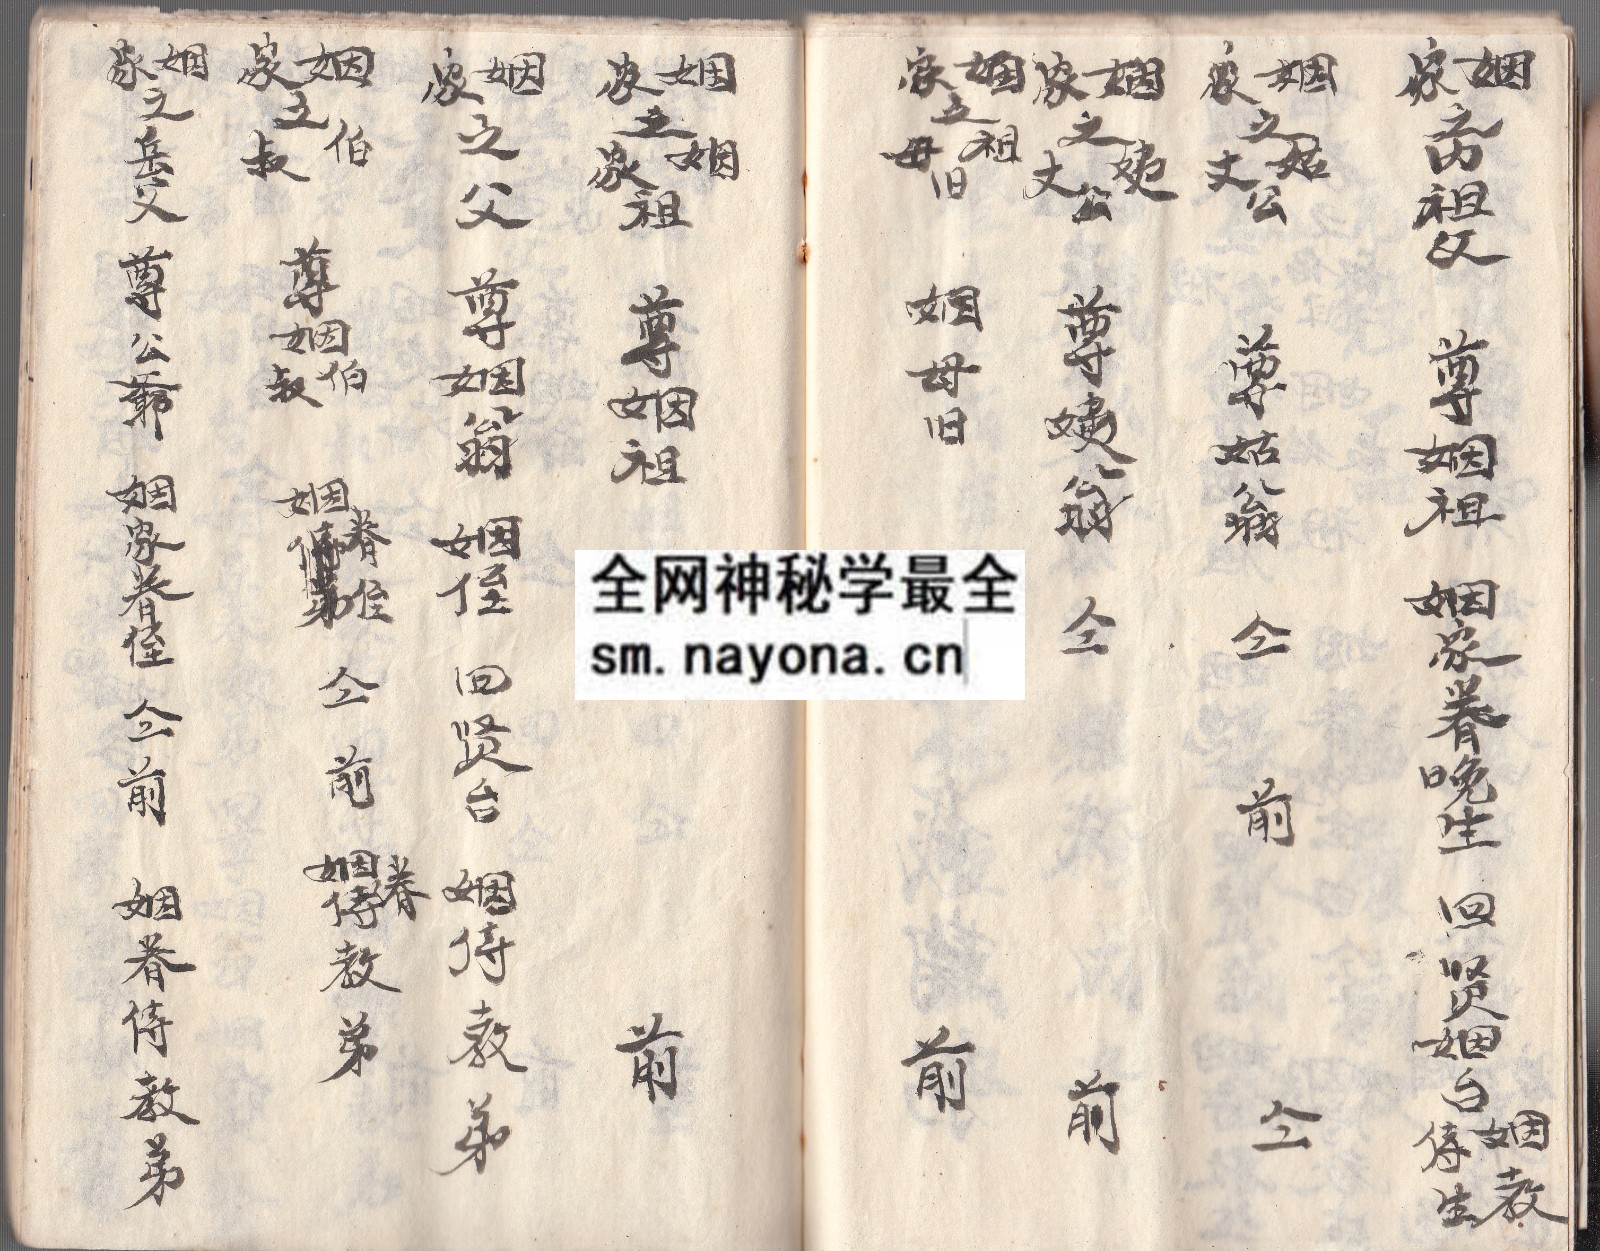 姻家之内祖父 尊姻祖 姻家眷晚生 回贤姻台 姻教侍生
姻家之姑丈公 尊姑翁 仝 前 仝
姻家之姨丈公 尊姨翁 仝 前
姻家之祖母旧 姻母旧 前
姻家之姻家祖 尊姻祖 前
姻家之父 尊姻翁 姻侄 回贤台 姻侍教弟
姻家之伯叔 尊姻伯叔 姻眷侄 仝 前 姻眷侍教弟
姻家之岳父 尊公爺 姻家眷侄 仝前 姻眷侍教弟
全网神秘学最全
sm.nayona.cn